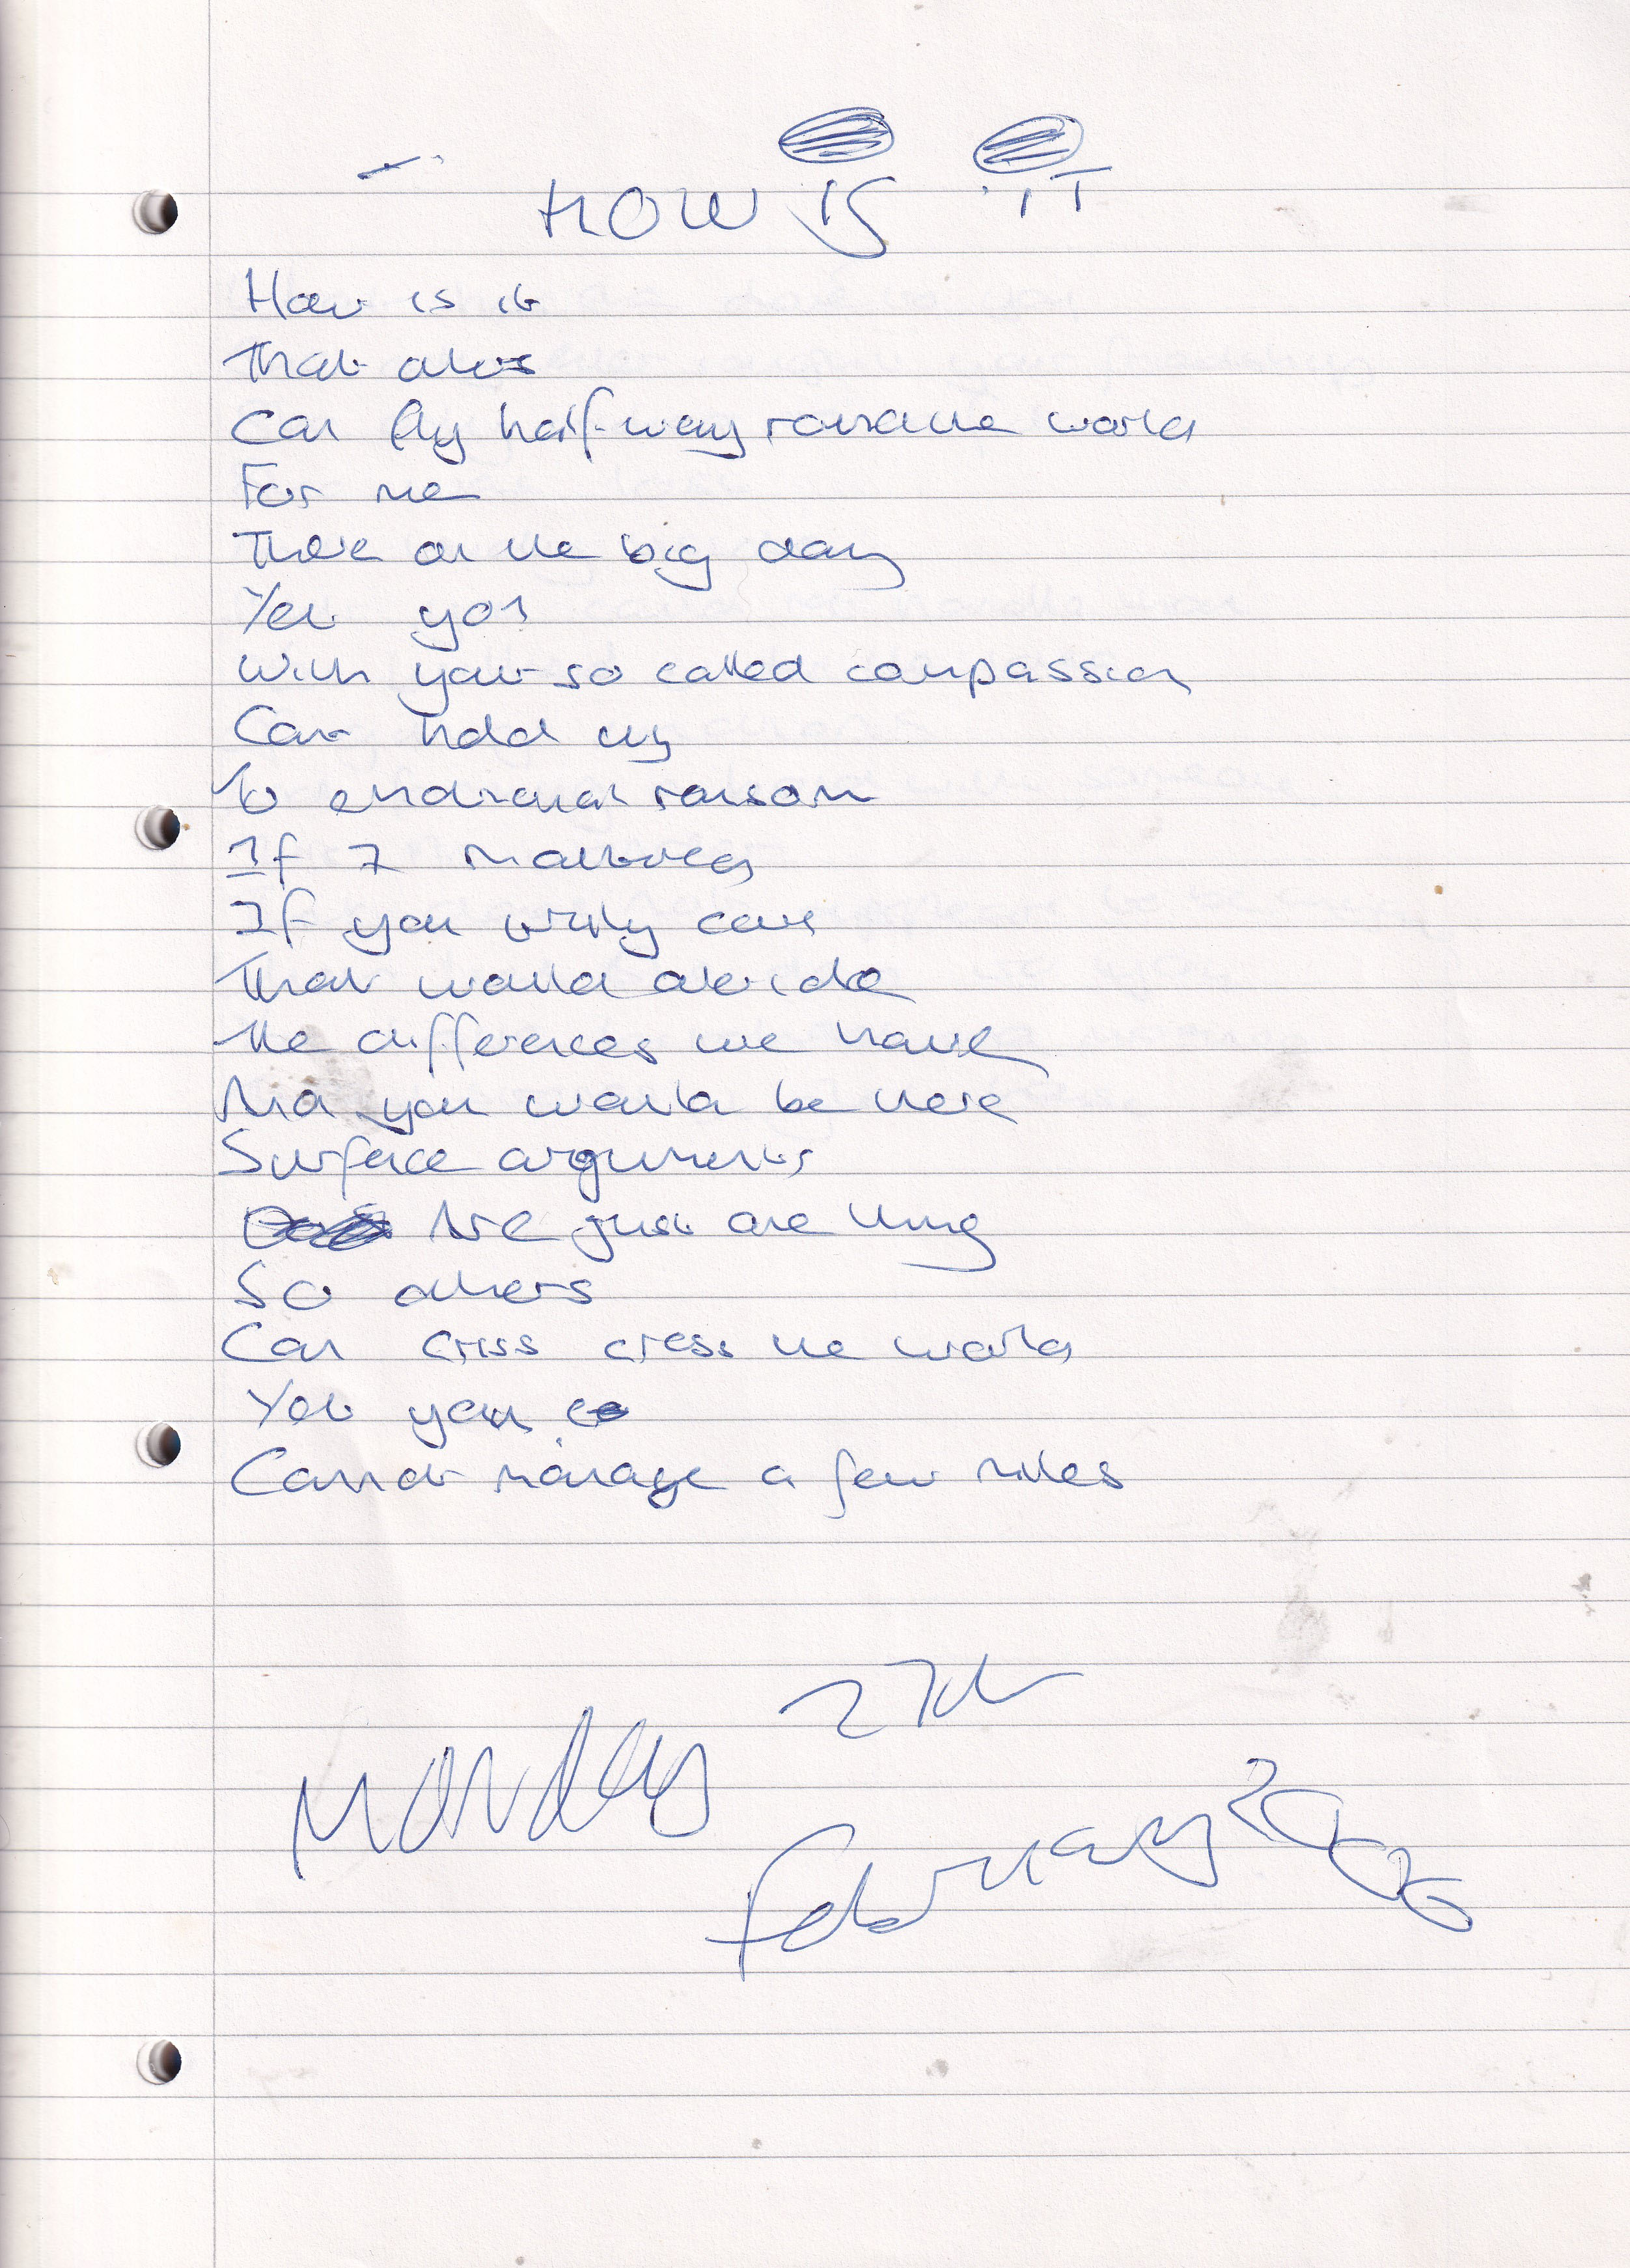 HOW IS IT
How is it
That others
Can fly half way round the world
For me
There on the big day
Yet you
With your so called compassion
Can hold my
To emotional ransom
If I mattered
If you truly care
That would override
The differences we have
And you would be here
Surface arguments
Are just one thing
So others
Can criss cross the world
Yet you
Cannot manage a few miles
Monday 27th
February 2006